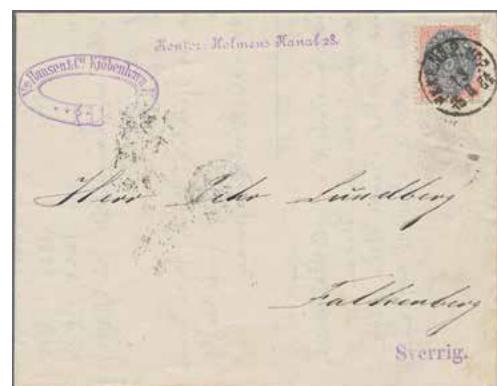 Kontor: Holmens Kanal 28.
Hansen & Co Kjöbenhavn
Herr Lundberg
Falkenberg
Sverrig.